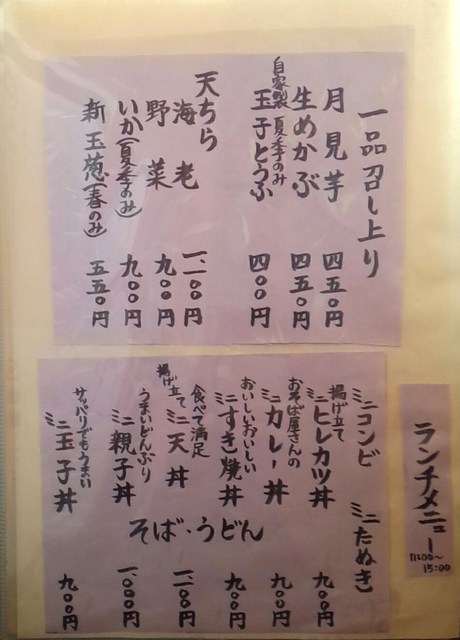 一品召し上り
月見芋 四五〇円
生めかぶ 四五〇円
自家製 夏季のみ
玉子とうふ 四〇〇円
天ちら
海老 一、一〇〇円
野菜 九〇〇円
いか(夏季のみ) 九〇〇円
新玉葱(春のみ) 五五〇円
ランチメニュー
11:00～
15:00
ミニコンビ ミニたぬき
揚げ立て
ミニヒレカツ丼 九〇〇円
おそば屋さんの
ミニカレー丼 九〇〇円
おいしいおいしい
ミニすき焼丼 九〇〇円
食べて満足
揚げ立て
ミニ天丼 一、一〇〇円
うまいどんぶり
ミニ親子丼 一、〇〇〇円
サッパリでもうまい
ミニ玉子丼 九〇〇円
そば・うどん